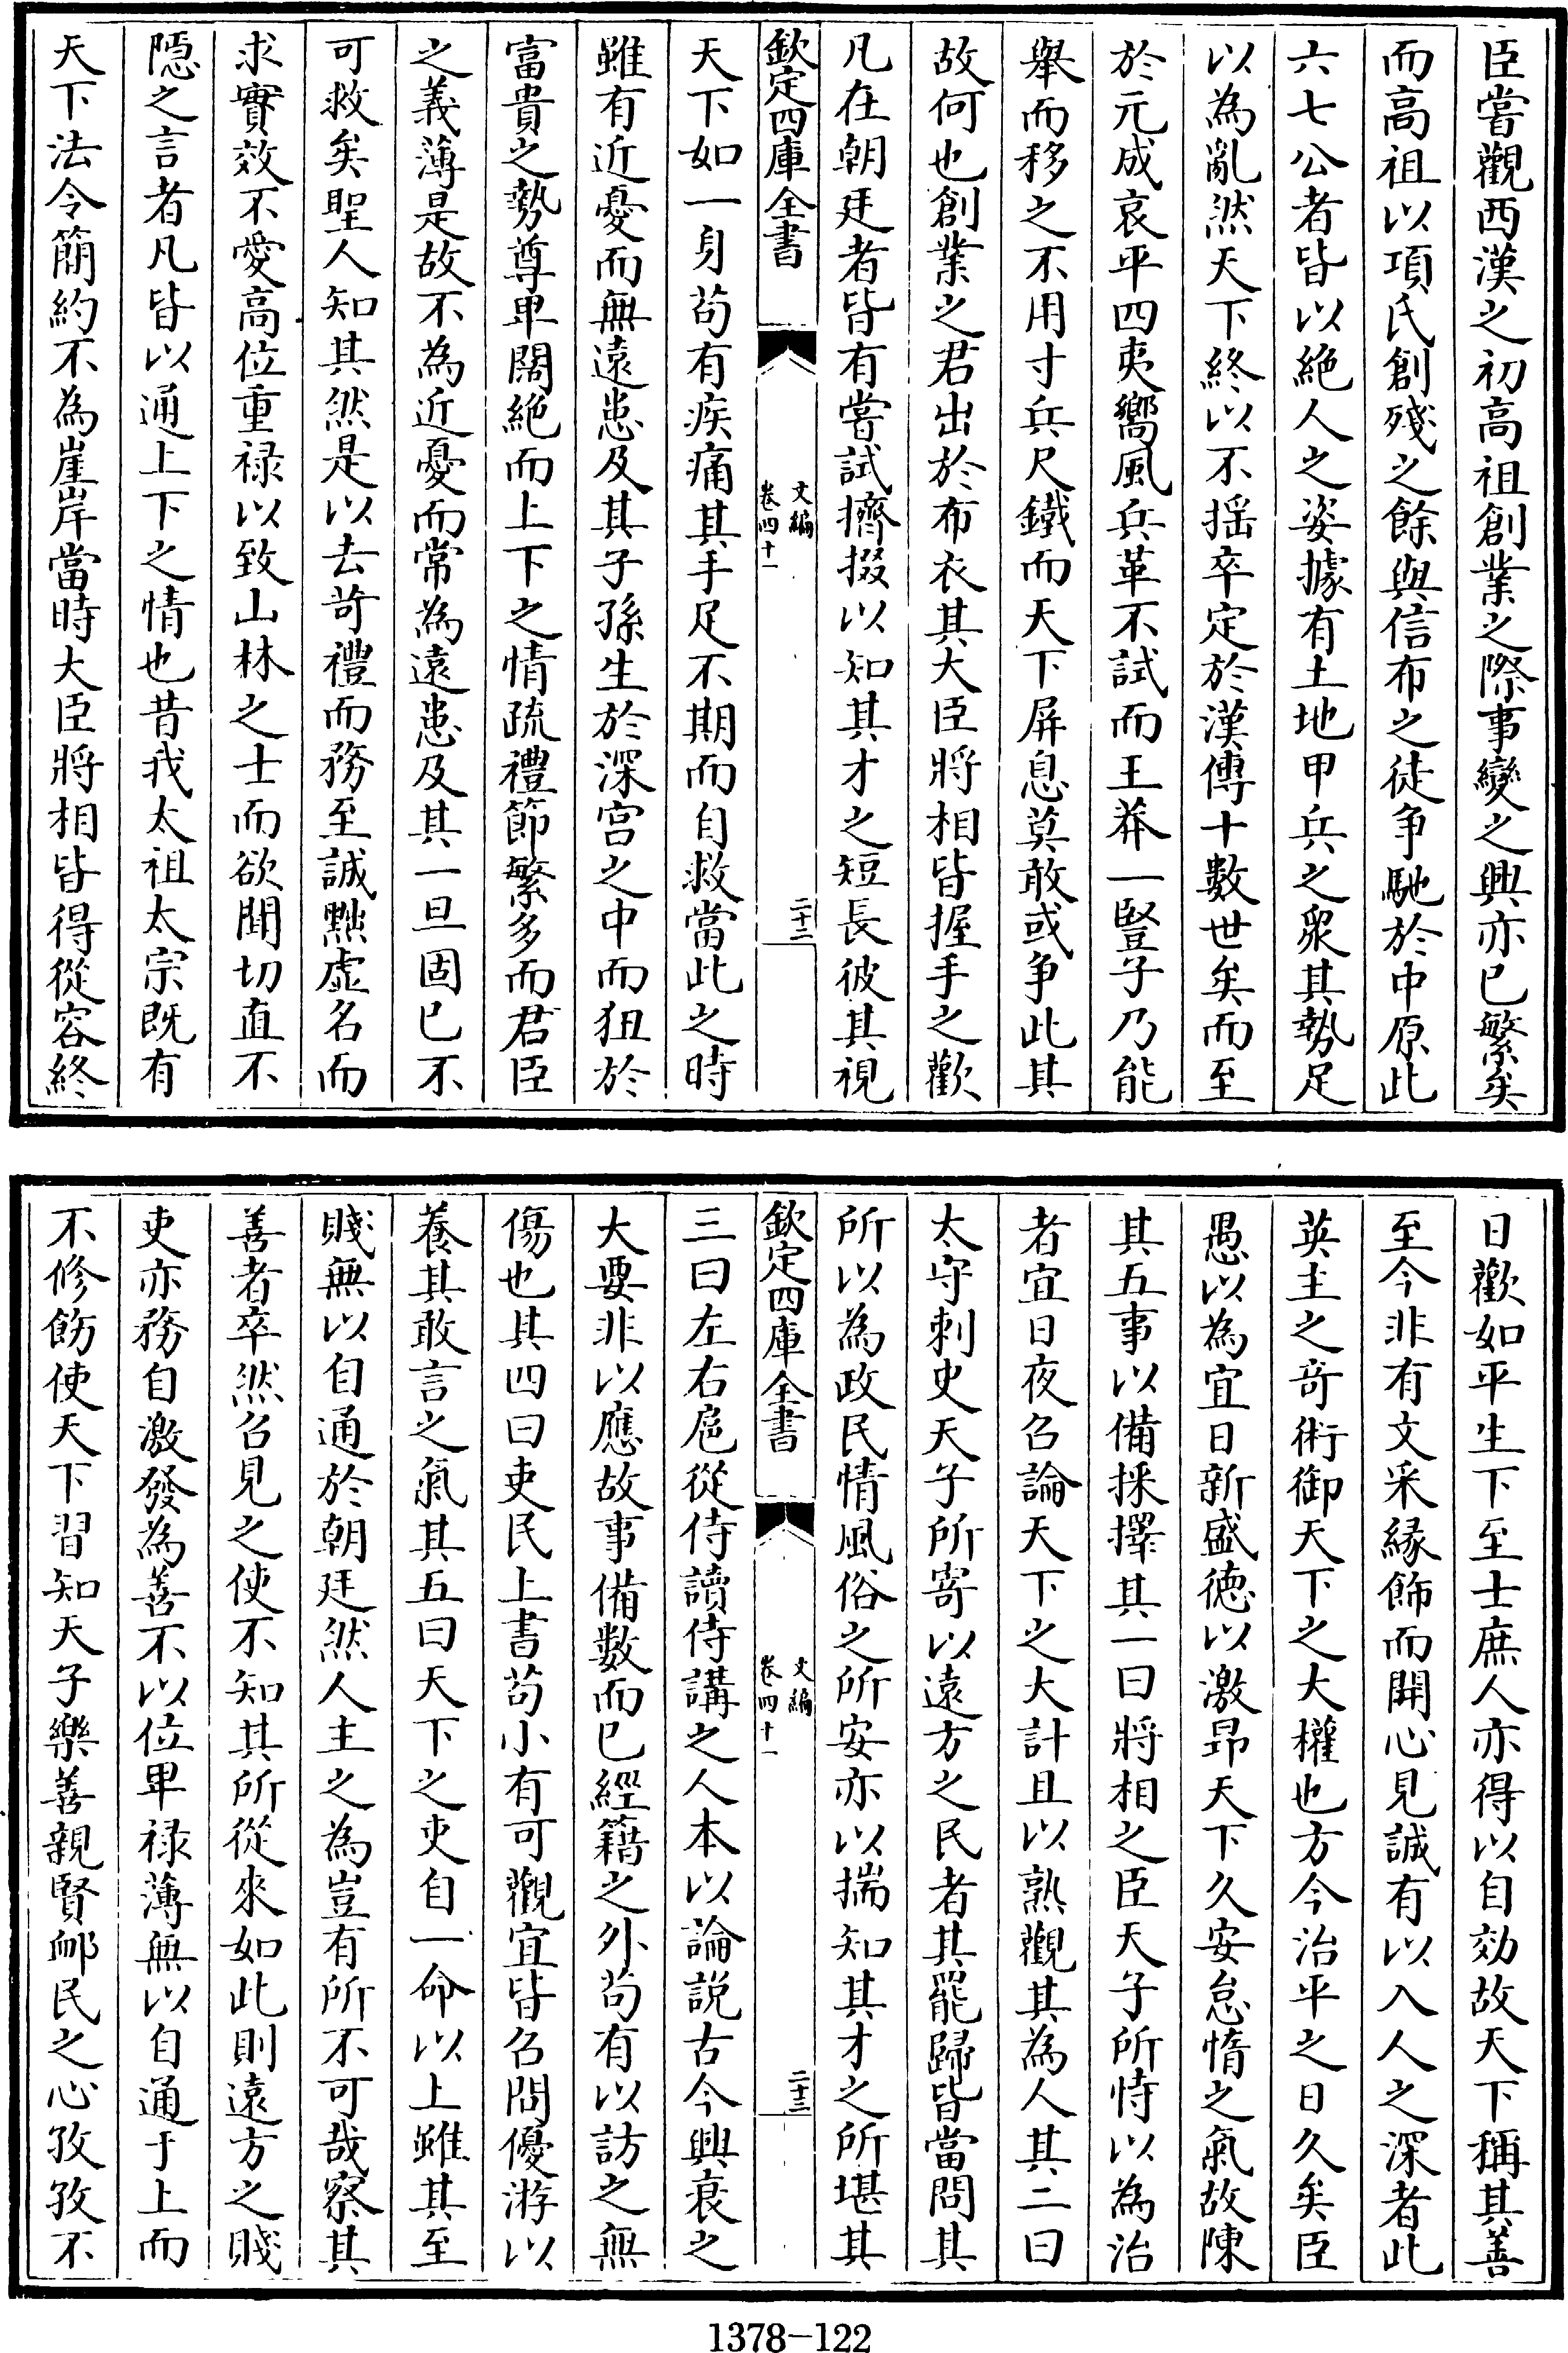 臣嘗觀西漢之初高祖創業之際事變之興亦已繁矣
而高祖以項氏創殘之餘與信布之徒爭馳於中原此
六七公者皆以絶人之姿據有土地甲兵之衆其勢足
以為亂然天下終以不揺卒定於漢傳十數世矣而至
於元成哀平四夷嚮風兵革不試而王莽一豎子乃能
舉而移之不用寸兵尺鐵而天下屏息莫敢或爭此其
故何也創業之君出於布衣其大臣將相皆握手之歡
凡在朝廷者皆有嘗試擠掇以知其才之短長彼其視
欽定四庫全書
文編
卷四十一
二十二
天下如一身苟有疾痛其手足不期而自救當此之時
雖有近憂而無遠患及其子孫生於深宫之中而狃於
富貴之勢尊卑闊絶而上下之情疏禮節繁多而君臣
之義薄是故不為近憂而常為遠患及其一旦固已不
可救矣聖人知其然是以去苛禮而務至誠黜虚名而
求實效不愛高位重禄以致山林之士而欲聞切直不
隱之言者凡皆以通上下之情也昔我太祖太宗既有
天下法令簡約不為崖岸當時大臣將相皆得從容終
日歡如平生下至士庶人亦得以自効故天下稱其善
至今非有文采縁飾而開心見誠有以入人之深者此
英主之竒術御天下之大權也方今治平之日久矣臣
愚以為宜日新盛徳以激昂天下久安怠惰之氣故陳
其五事以備採擇其一曰將相之臣天子所恃以為治
者宜日夜召論天下之大計且以熟觀其為人其二曰
太守刺史天子所寄以遠方之民者其罷歸皆當問其
所以為政民情風俗之所安亦以揣知其才之所堪其
欽定四庫全書
文編
卷四十一
二十三
三曰左右扈從侍讀侍講之人本以論說古今興衰之
大要非以應故事備數而已經籍之外苟有以訪之無
傷也其四曰吏民上書苟小有可觀宜皆召問優游以
養其敢言之氣其五曰天下之吏自一命以上雖其至
賤無以自通於朝廷然人主之為豈有所不可哉察其
善者卒然召見之使不知其所從來如此則遠方之賤
吏亦務自激發為善不以位卑禄薄無以自通于上而
不修飭使天下習知天子樂善親賢卹民之心孜孜不
1378-122